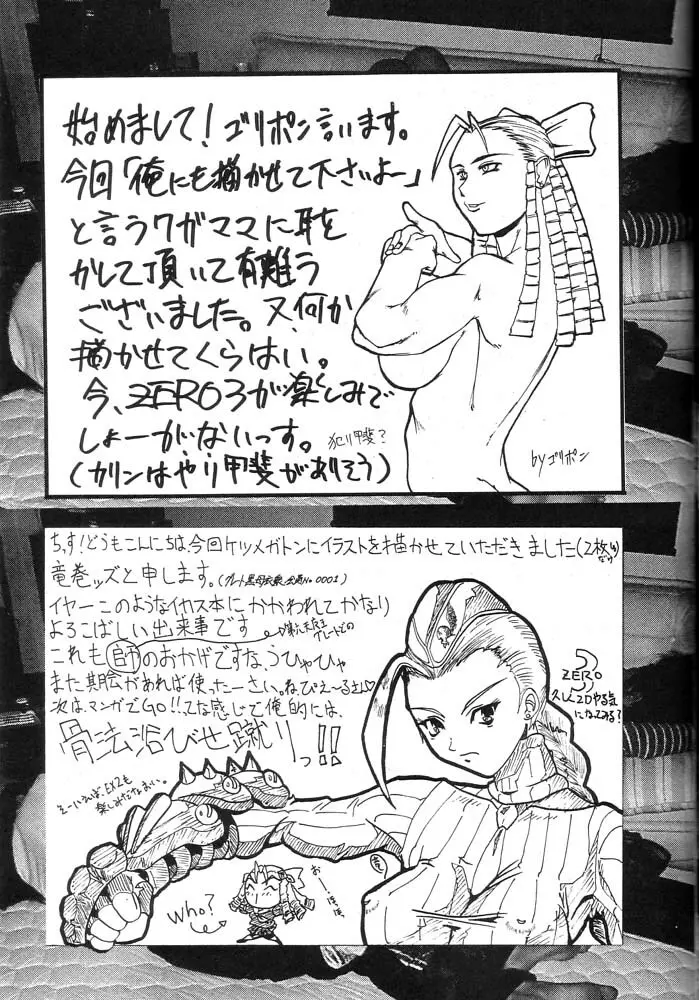 始めまして！ゴリポン言います。
今回「俺にも描かせて下さいよー」
と言うワガママに耳を
かして頂いて有難う
ございました。又、何か
描かせてくらはい。
今、ZERO3が楽しみで
しょーがないっす。
(カリンはやり甲斐がありそう)
犯り甲斐？
byゴリポン
ちっす！どうもこんにちは、今回ケツメガトンにイラストを描かせていただきました(2枚
竜巻ッズと申します。
No.0001)
イヤーこのようなイカス本にかかわれてかなり
よろこばしい出来事です
これも師のおかげですなうひゃひゃ
また機会があれば使ったーさい。ねぴえ～るさん♡
次は、マンガでGO!!てな感じで俺的には、
骨法浴びせ蹴りっ!!
ZERO3
久しく2Dやる気
になってみる？
そーいえば、EX2も
楽しみだなおい。
Who?
おーほほほ
竜